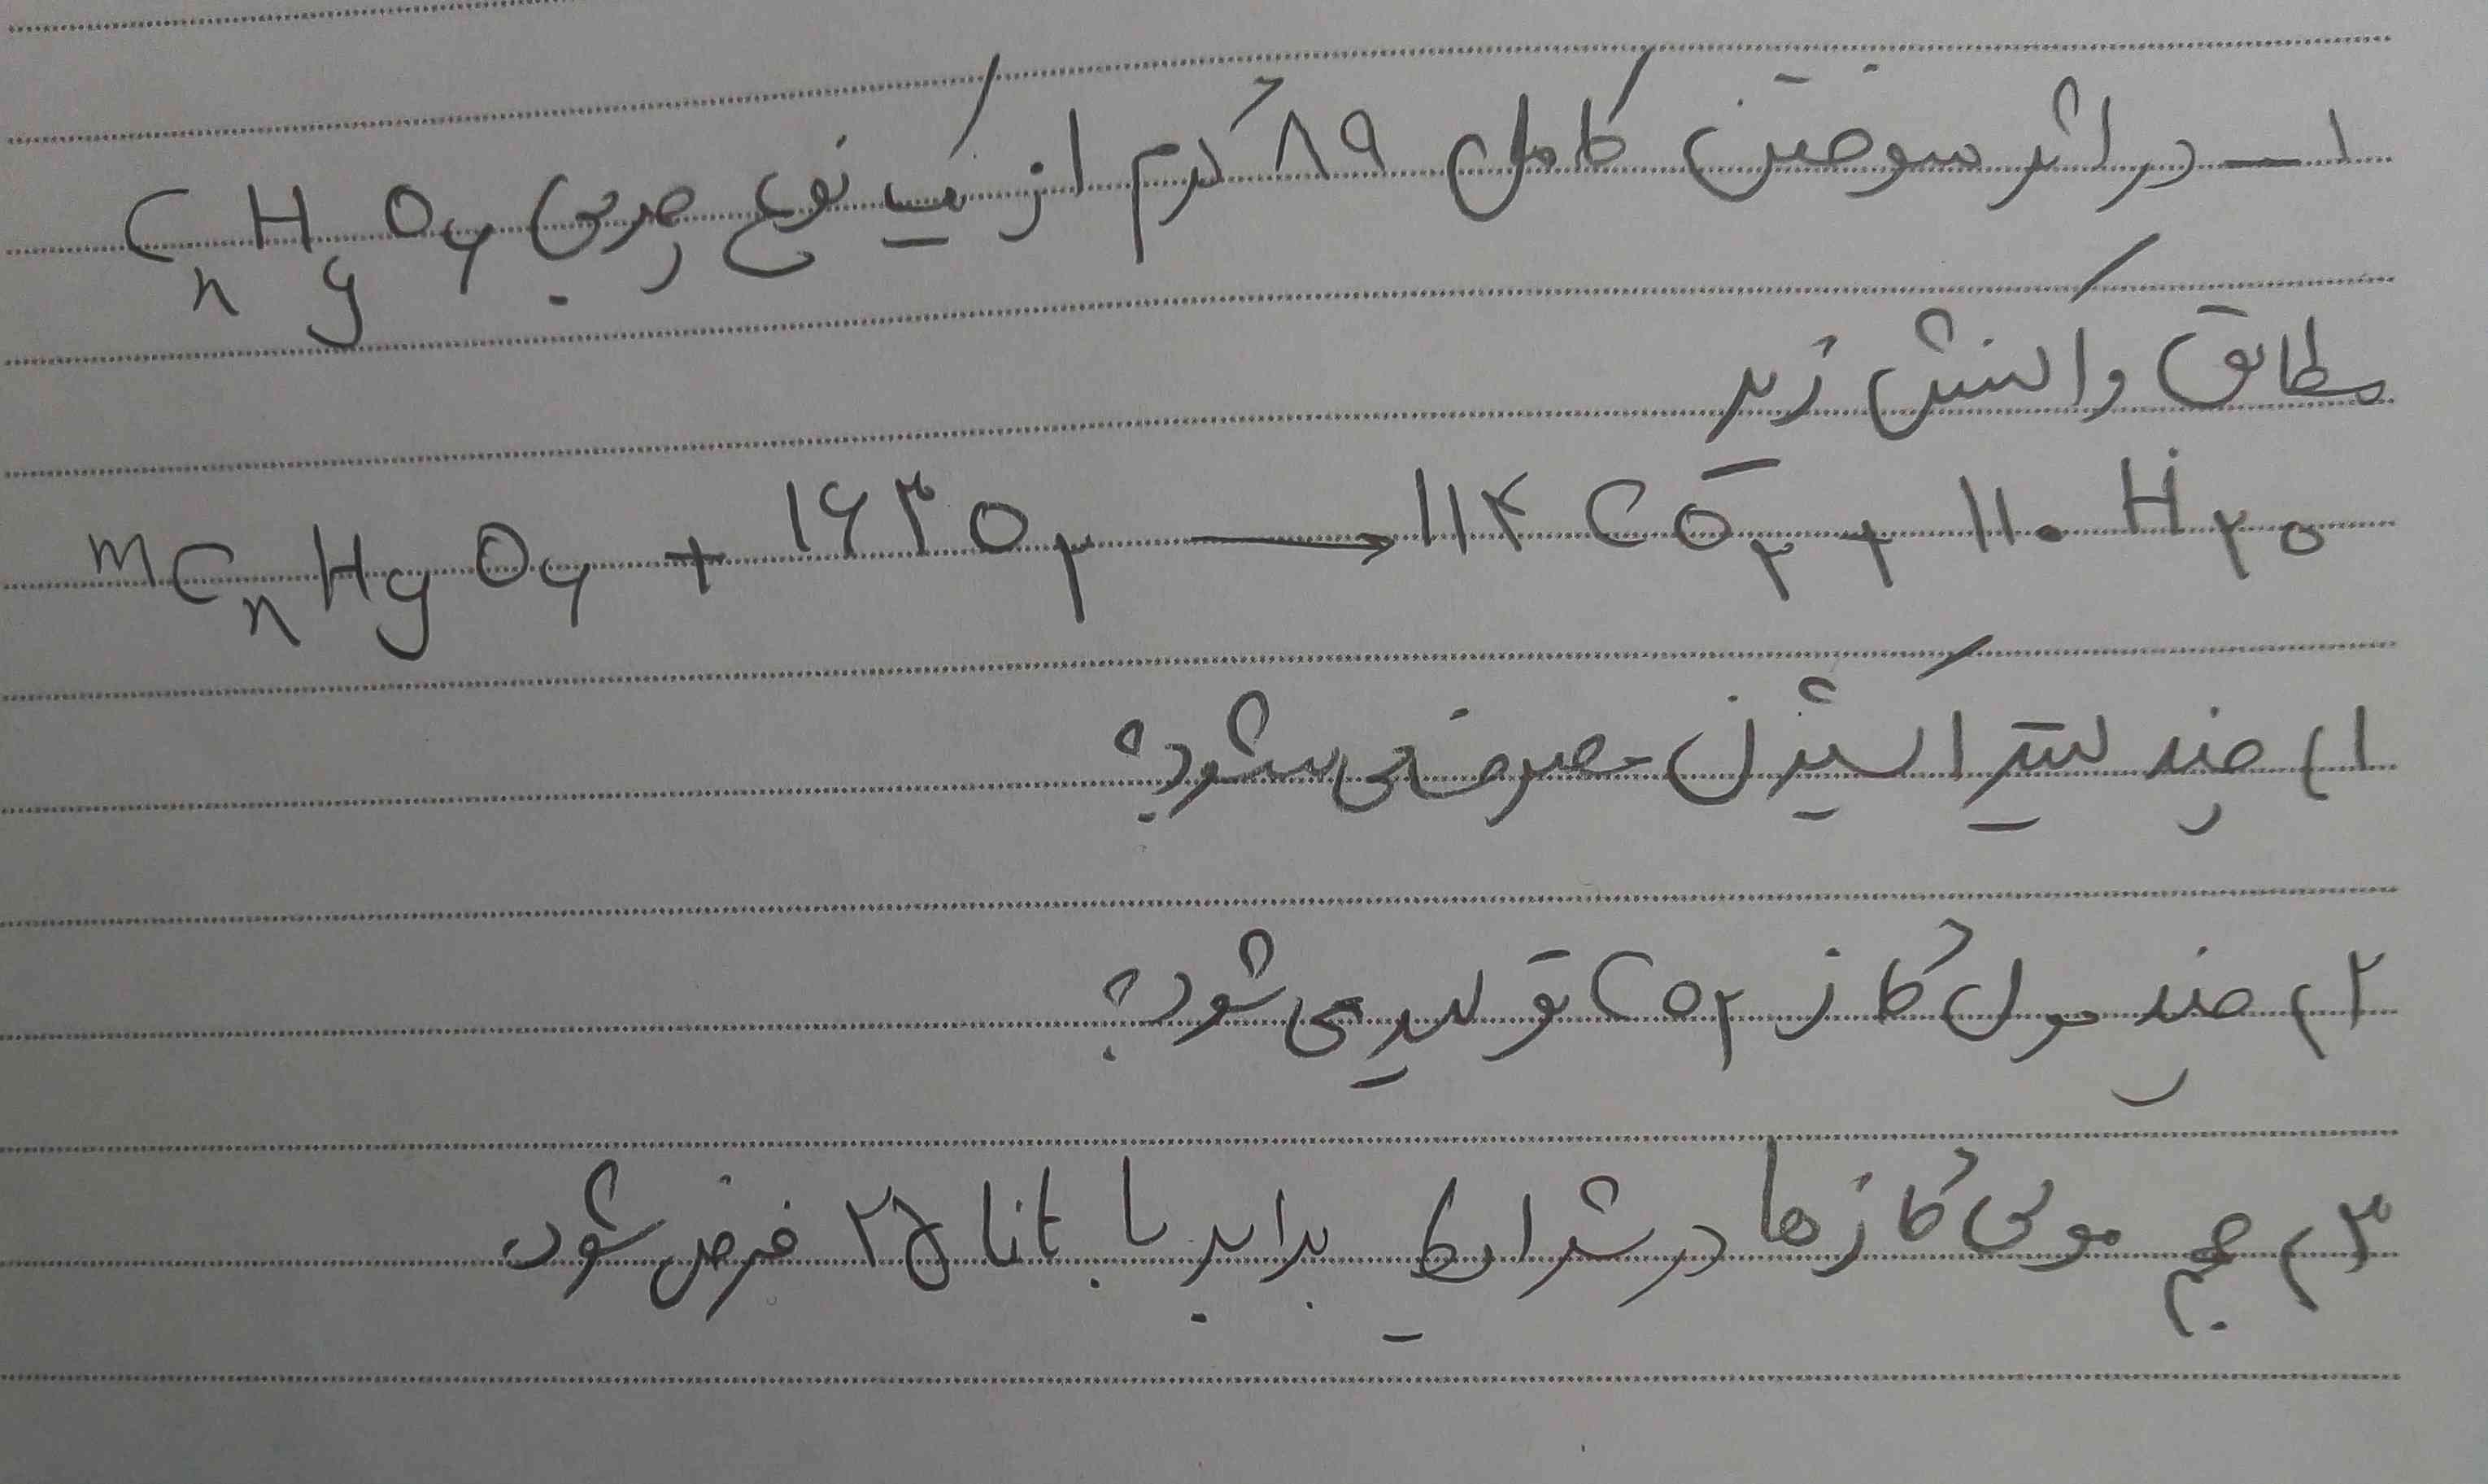 ۱ — در اثر سوختن کامل ۸۹ گرم از یک نوع چربی CnHyO۶
مطابق واکنش زیر
mCnHyO۶ + ۱۶۳O۲ → ۱۱۴CO۲ + ۱۱۰H۲O
۱) چند لیتر اکسیژن مصرف می شود؟
۲) چند مول گاز CO۲ تولید می شود؟
۳) حجم مولی گازها در شرایط برابر با ۲۵ فرض شود